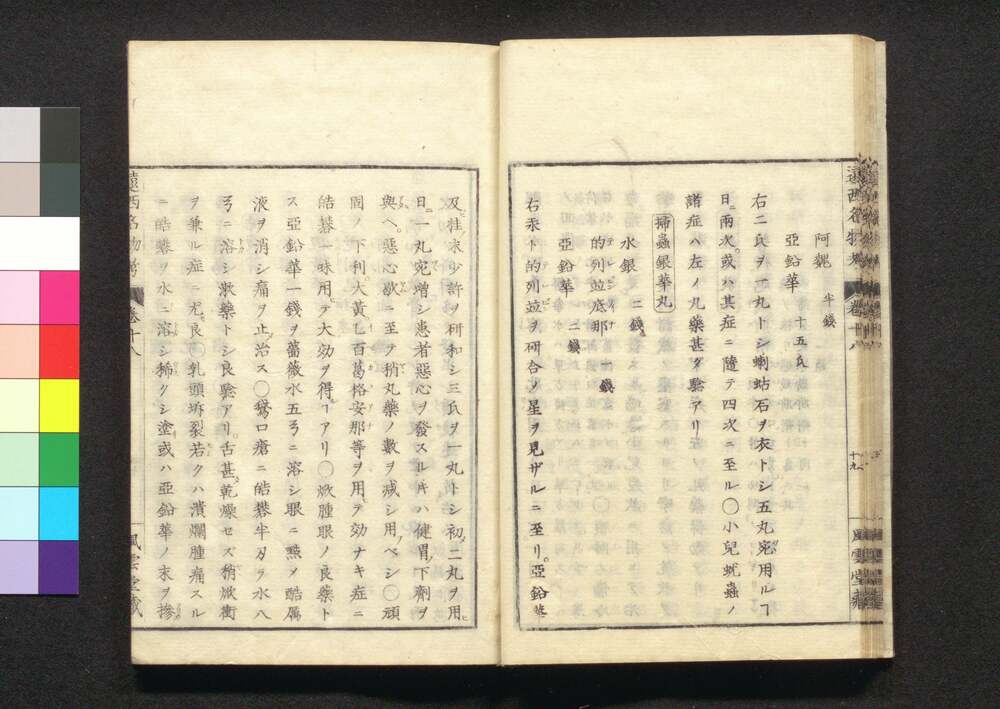 遠西名物考 卷十八
十九
風雲堂藏
阿魏 半錢
亞鉛華 十五氏
右二氏ヲ一丸トシ蝲蛄石ヲ衣トシ五丸宛用ルヿ
日ニ兩次或ハ其症ニ隨テ四次ニ至ル〇小兒蚘蟲ノ
諸症ハ左ノ丸藥甚ダ驗アリ
掃蟲銀華丸
水銀 二錢
的列並底那 一錢
亞鉛華 二錢
右汞ト的列並ヲ研合メ星ヲ見ザルニ至リ亞鉛華
及桂末少許ヲ研和シ三氏ヲ一丸トシ初ノ二丸ヲ用ヒ
日ニ一丸宛増シ患者惡心ヲ發スルキハ健胃ノ下劑ヲ
與ヘ惡心歇ニ至テ稍丸藥ノ數ヲ減シ用ベシ〇頑
固ノ下利大黃吐百葛格安那等ヲ用テ効ナキ症ニ
皓礬一味用テ大効ヲ得ヿアリ〇焮腫眼ノ良藥ト
ス亞鉛華一錢ヲ薔薇水五弓ニ溶シ眼ニ㸃メ酷厲
液ヲ消シ痛ヲ止治ス〇鵞口瘡ニ皓礬半刄ヲ水八
弓ニ溶シ漱藥トシ良驗アリ舌甚乾燥セズ稍焮衝
ヲ兼ル症ニ尤良〇乳頭坼裂若クハ潰爛腫痛スル
ニ皓礬ヲ水ニ溶シ稀クシ塗或ハ亞鉛華ノ末ヲ摻
遠西名物考 卷十八
風雲堂藏